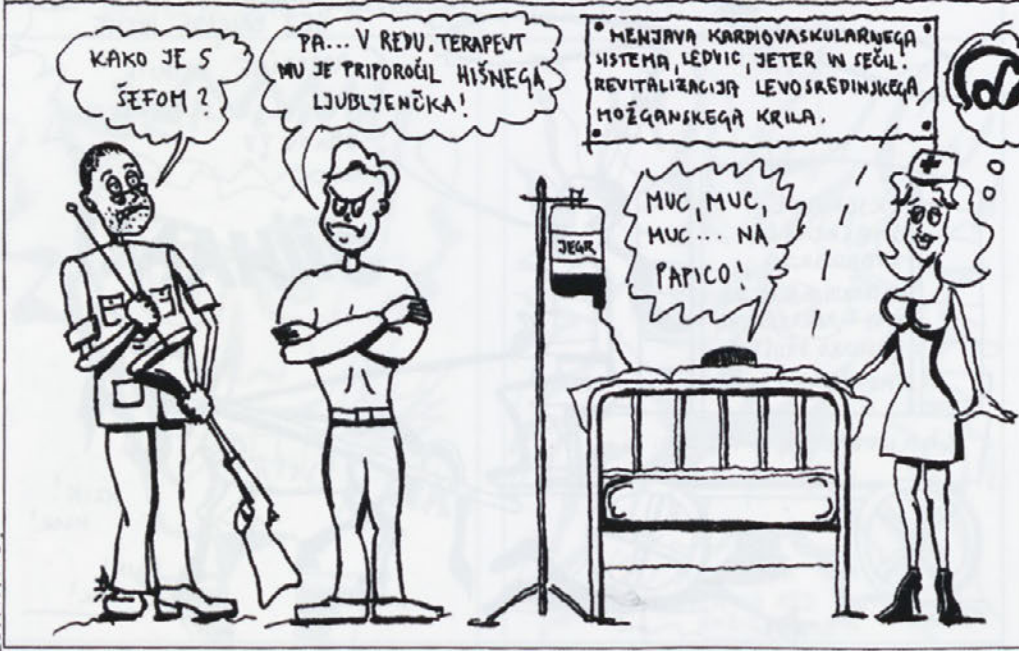 KAKO JE S
ŠEFOM?
PA... V REDU. TERAPEVT
MU JE PRIPOROČIL HIŠNEGA
LJUBLJENČKA!
MENJAVA KARDIOVASKULARNEGA
SISTEMA, LEDVIC, JETER IN SEČIL.
REVITALIZACIJA LEVOSREDINSKEGA
MOŽGANSKEGA KRILA.
JEGR
MUC, MUC,
MUC... NA
PAPICO!